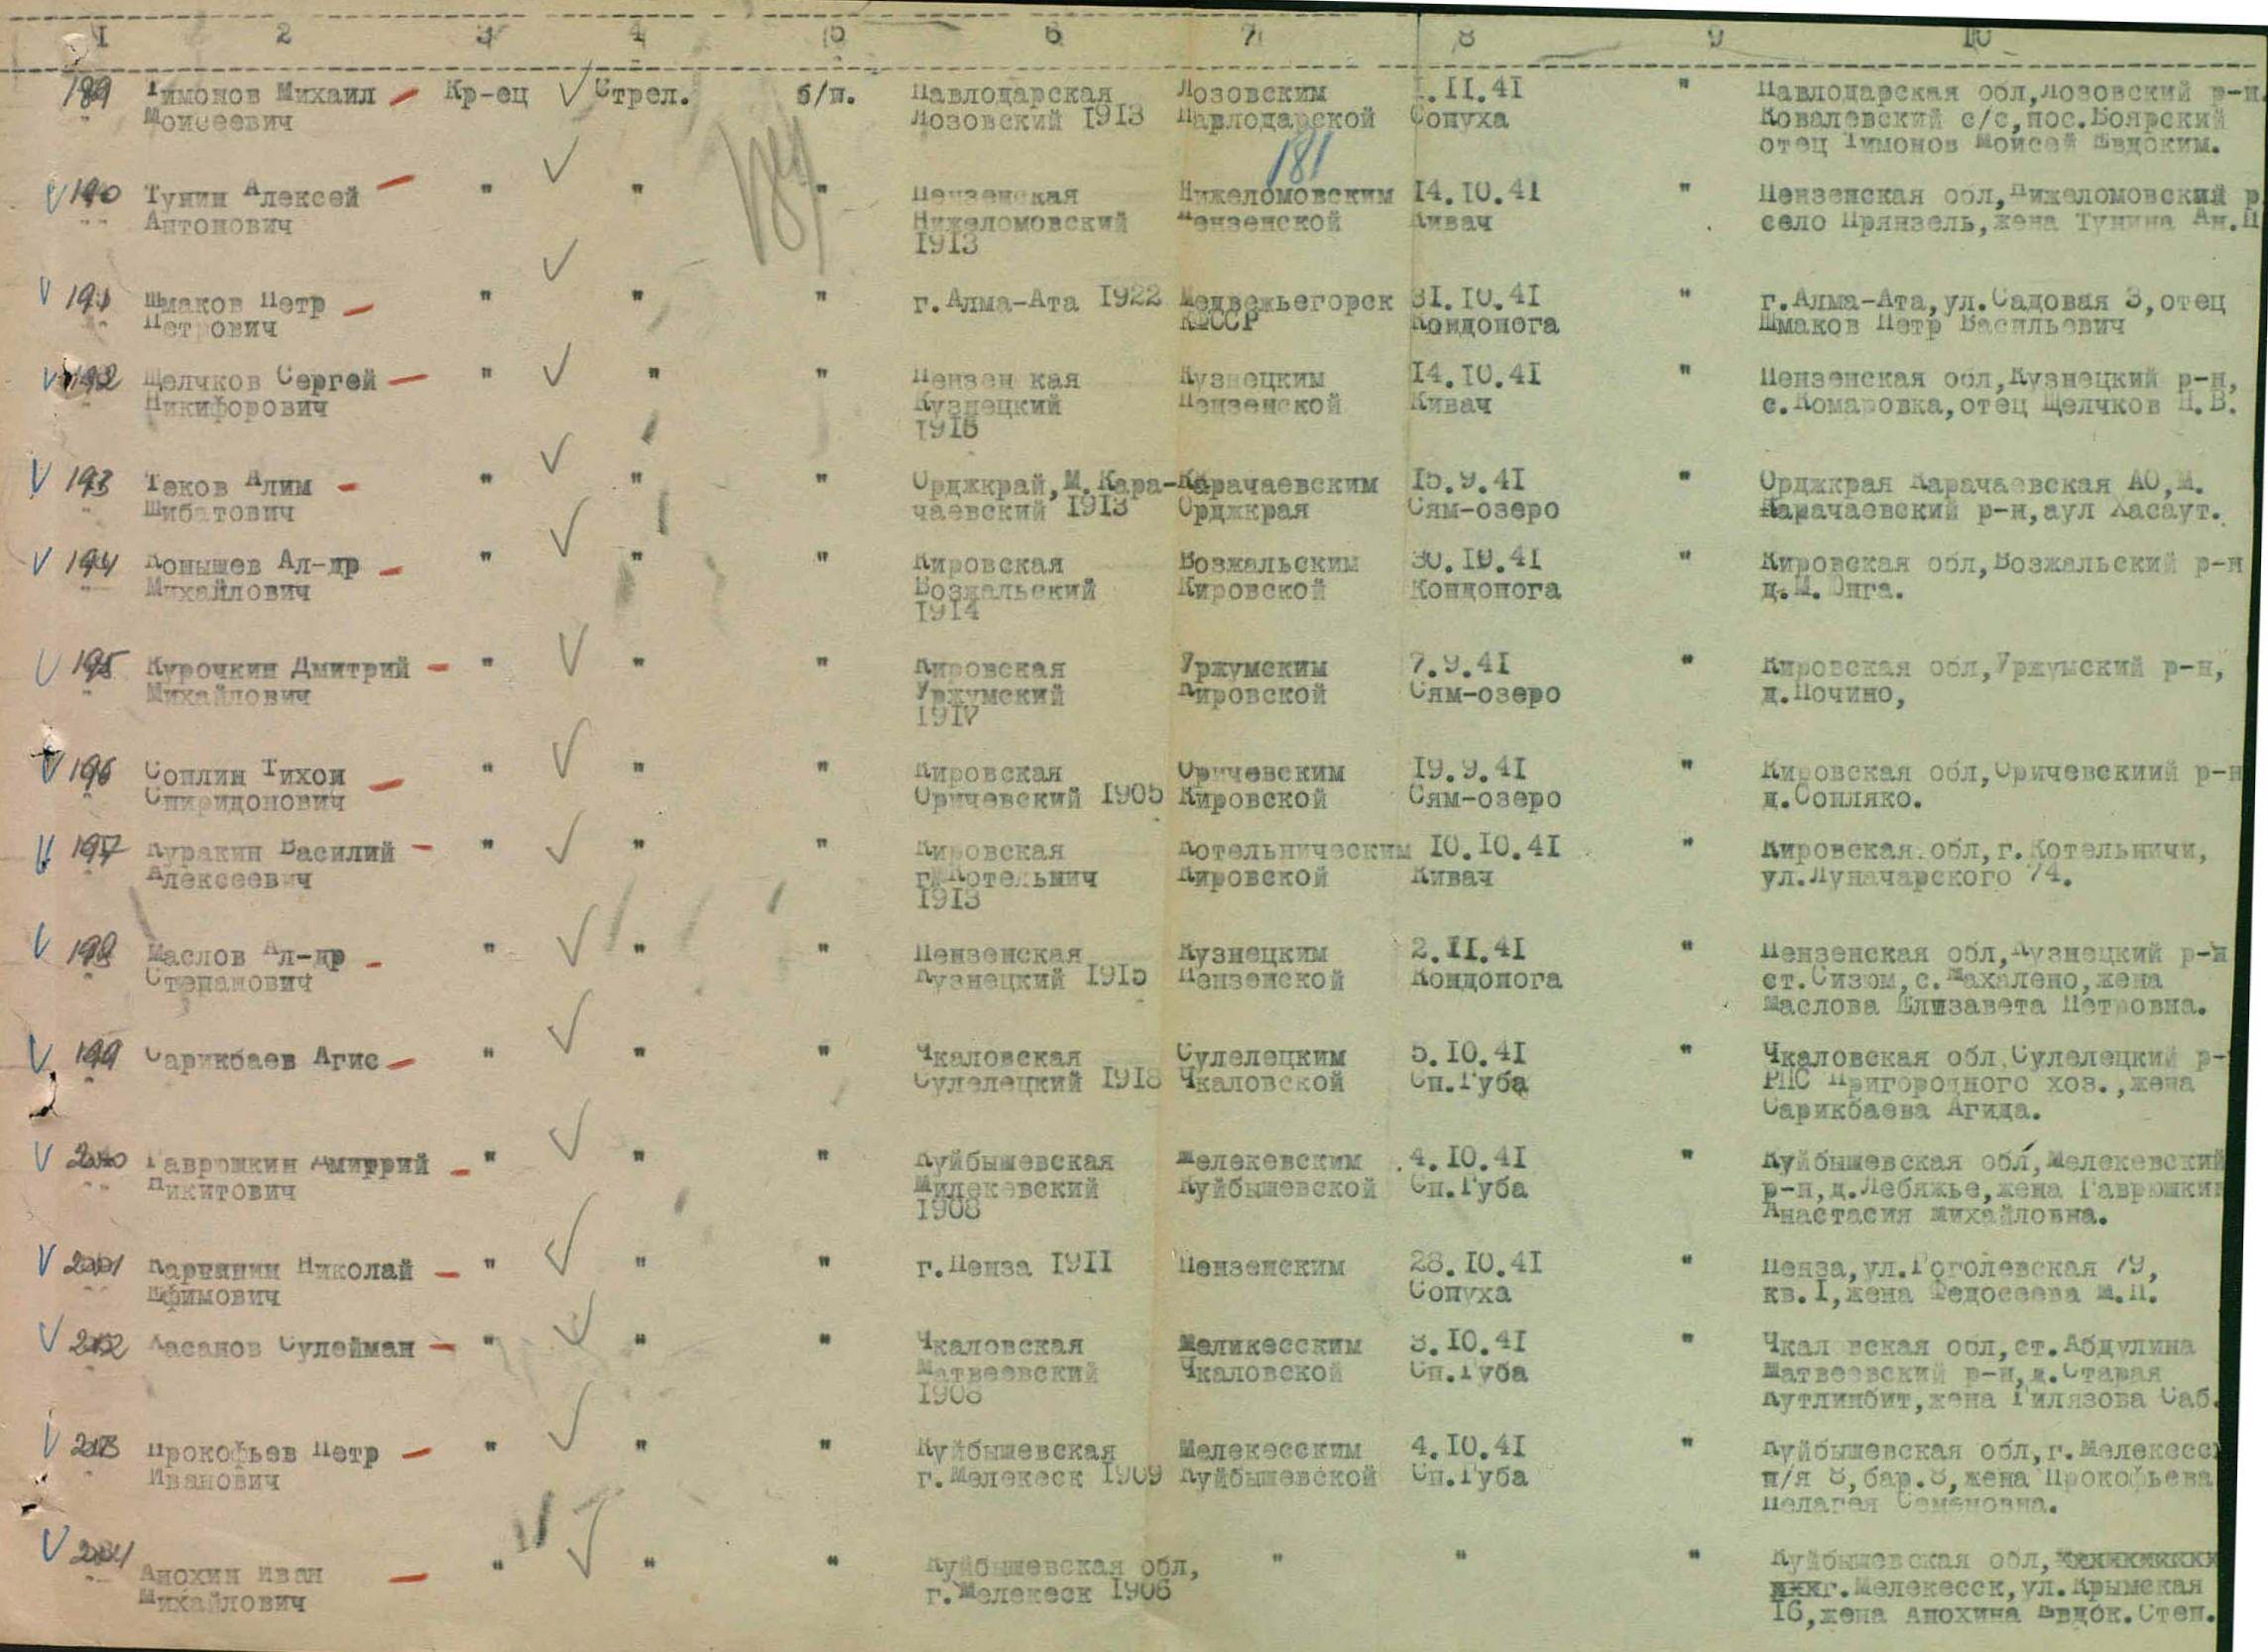 1 2 3 4 5 6 7 8 9 10
189 Тимонов Михаил Кр-ец Стрел. б/п. Павлодарская Лозовским 1.11.41 " Павлодарская обл,Лозовский р-н.
" Моисеевич Лозовский 1913 Павлодарской Сопуха Ковалевский с/с,пос.Боярский
отец Тимонов Моисей Евдоким.
181
190 Тунин Алексей " " " Пензенская Нижеломовским 14.10.41 " Пензенская обл,Нижеломовский р
" " Антонович Нижеломовский Пензенской Кивач село Прянзель,жена Тунина Ан.П
1913
191 Шмаков Петр " " " г.Алма-Ата 1922 Медвежьегорск 31.10.41 " г.Алма-Ата,ул.Садовая 3,отец
Петрович КФССР Кондопога Шмаков Петр Васильевич
192 Щелчков Сергей " " " Пензен кая Кузнецким 14.10.41 " Пензенская обл,Кузнецкий р-н,
Никифорович Кузнецкий Пензенской Кивач с.Комаровка,отец Щелчков Н.В.
1916
193 Теков Алим " " " Орджкрай,М.Кара- Карачаевским 15.9.41 " Орджкрая Карачаевская АО,М.
" Шибатович чаевский 1913 Орджкрая Сям-озеро Карачаевский р-н,аул Хасаут.
194 Конышев Ал-др " " " Кировская Возжальским 30.10.41 " Кировская обл,Возжальский р-н
Михайлович Возжальский Кировской Кондопога д.М.Юнга.
1914
195 Курочкин Дмитрий " " " Кировская Уржумским 7.9.41 " Кировская обл,Уржумский р-н,
" Михайлович Уржумский Кировской Сям-озеро д.Почино,
1917
196 Соплин Тихон " " " Кировская Оричевским 19.9.41 " Кировская обл,Оричевскиий р-н
" Спиридонович Оричевский 1905 Кировской Сям-озеро д.Сопляко.
197 Куракин Василий " " " Кировская Котельническим 10.10.41 " Кировская.обл,г.Котельничи,
" Алексеевич г.Котельнич Кировской Кивач ул.Луначарского 74.
1913
198 Маслов Ал-др " " " Пензенская Кузнецким 2.11.41 " Пензенская обл,Кузнецкий р-н
" Степанович Кузнецкий 1915 Пензенской Кондопога ст.Сизюм,с.Махалено,жена
Маслова Елизавета Петровна.
199 Сарикбаев Агис " " " Чкаловская Сулелецким 5.10.41 " Чкаловская обл,Сулелецкий р-
" Сулелецкий 1918 Чкаловской Сп.Губа РПС Пригородного хоз.,жена
Сарикбаева Агида.
200 Гаврюшкин Дмитрий " " " Куйбышевская Мелекевским 4.10.41 " Куйбышевская обл,Мелекевский
" " Никитович Милекевский Куйбышевской Сп.Губа р-н,д.Лебяжье,жена Гаврюшкин
1908 Анастасия Михайловна.
201 Карпянин Николай " " " г.Пенза 1911 Пензенским 28.10.41 " Пенза,ул.Гоголевская 79,
Ефимович Сопуха кв.1,жена Федосеева М.П.
202 Хасанов Сулейман " " " Чкаловская Меликесским 3.10.41 " Чкал вская обл,ст.Абдулина
Матвеевский Чкаловской Сп.Губа Матвеевский р-н,д.Старая
1908 Кутлинбит,жена Гилязова Саб.
203 Прокофьев Петр " " " Куйбышевская Мелекесским 4.10.41 " Куйбышевская обл,г.Мелекесс
" Иванович г.Мелекеск 1909 Куйбышевской Сп.Губа п/я 8,бар.8,жена Прокофьева
Пелагея Семеновна.
204 Анохин Иван " " " Куйбышевская обл, " " " Куйбышевская обл,
Михайлович г.Мелекеск 1906 г.Мелекесск,ул.Крымская
16,жена Анохина Евдок.Степ.